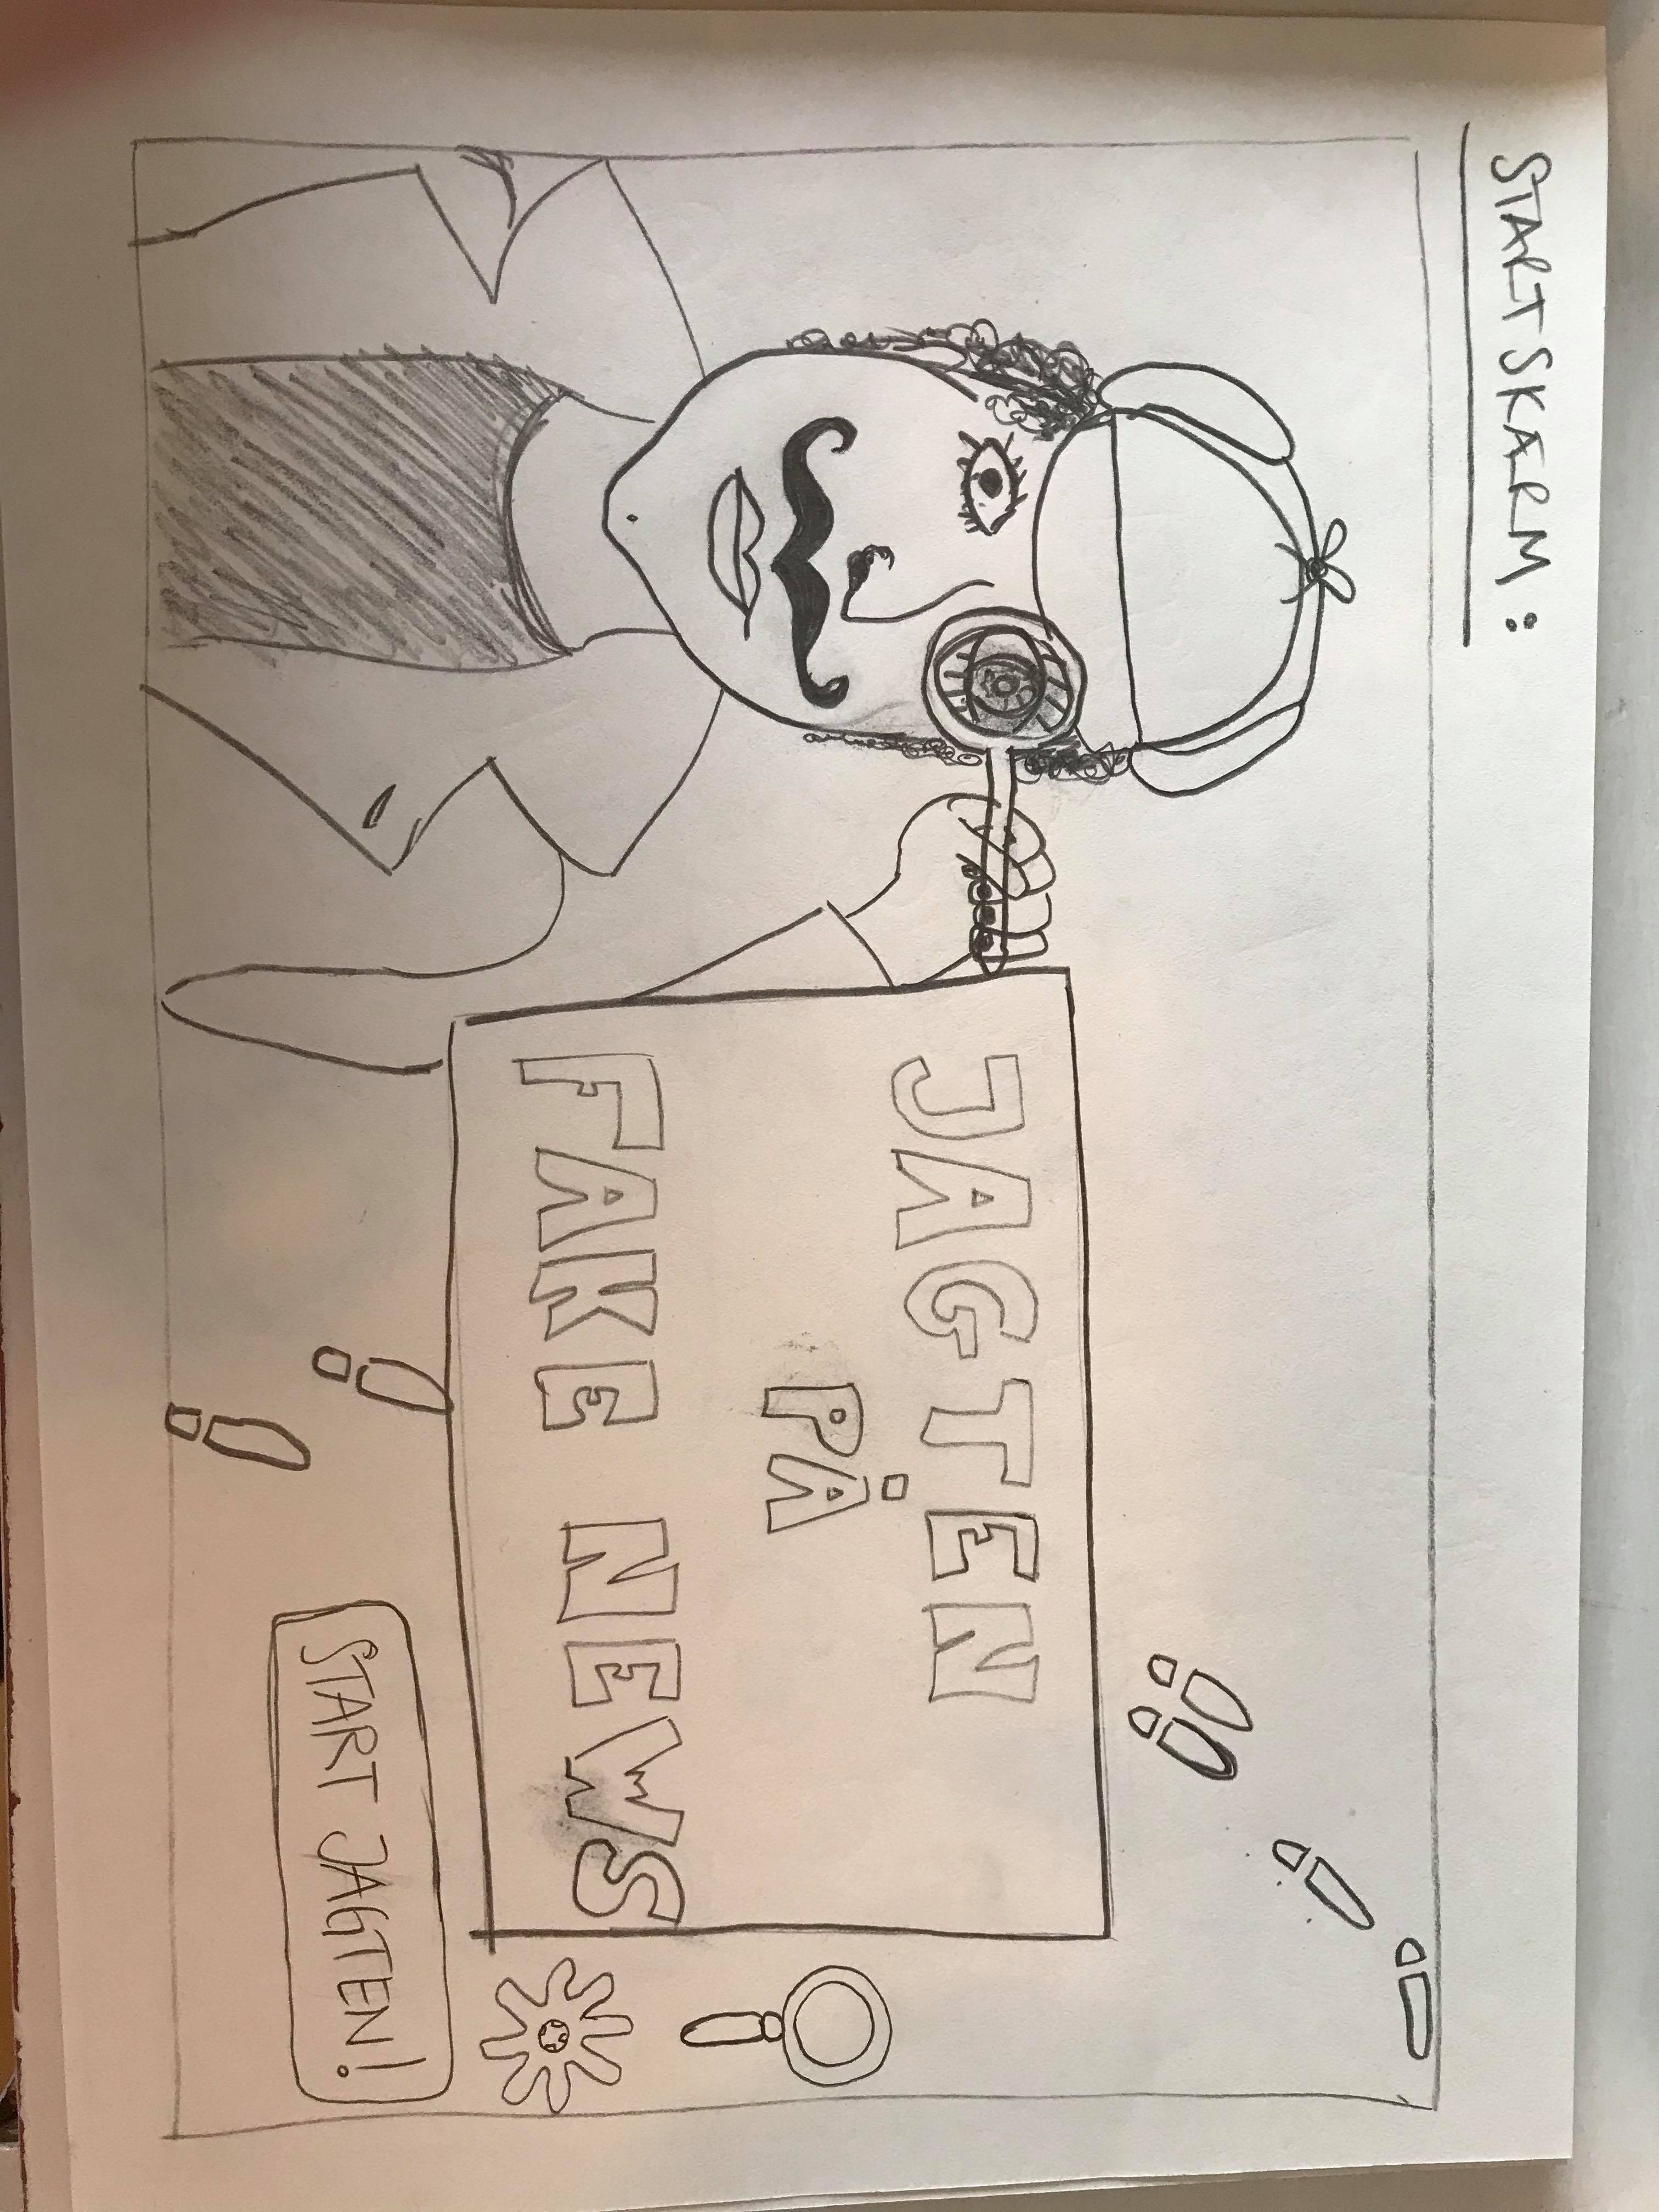 STARTSKÆRM:
JAGTEN
PÅ
FAKE NEWS
START JAGTEN!